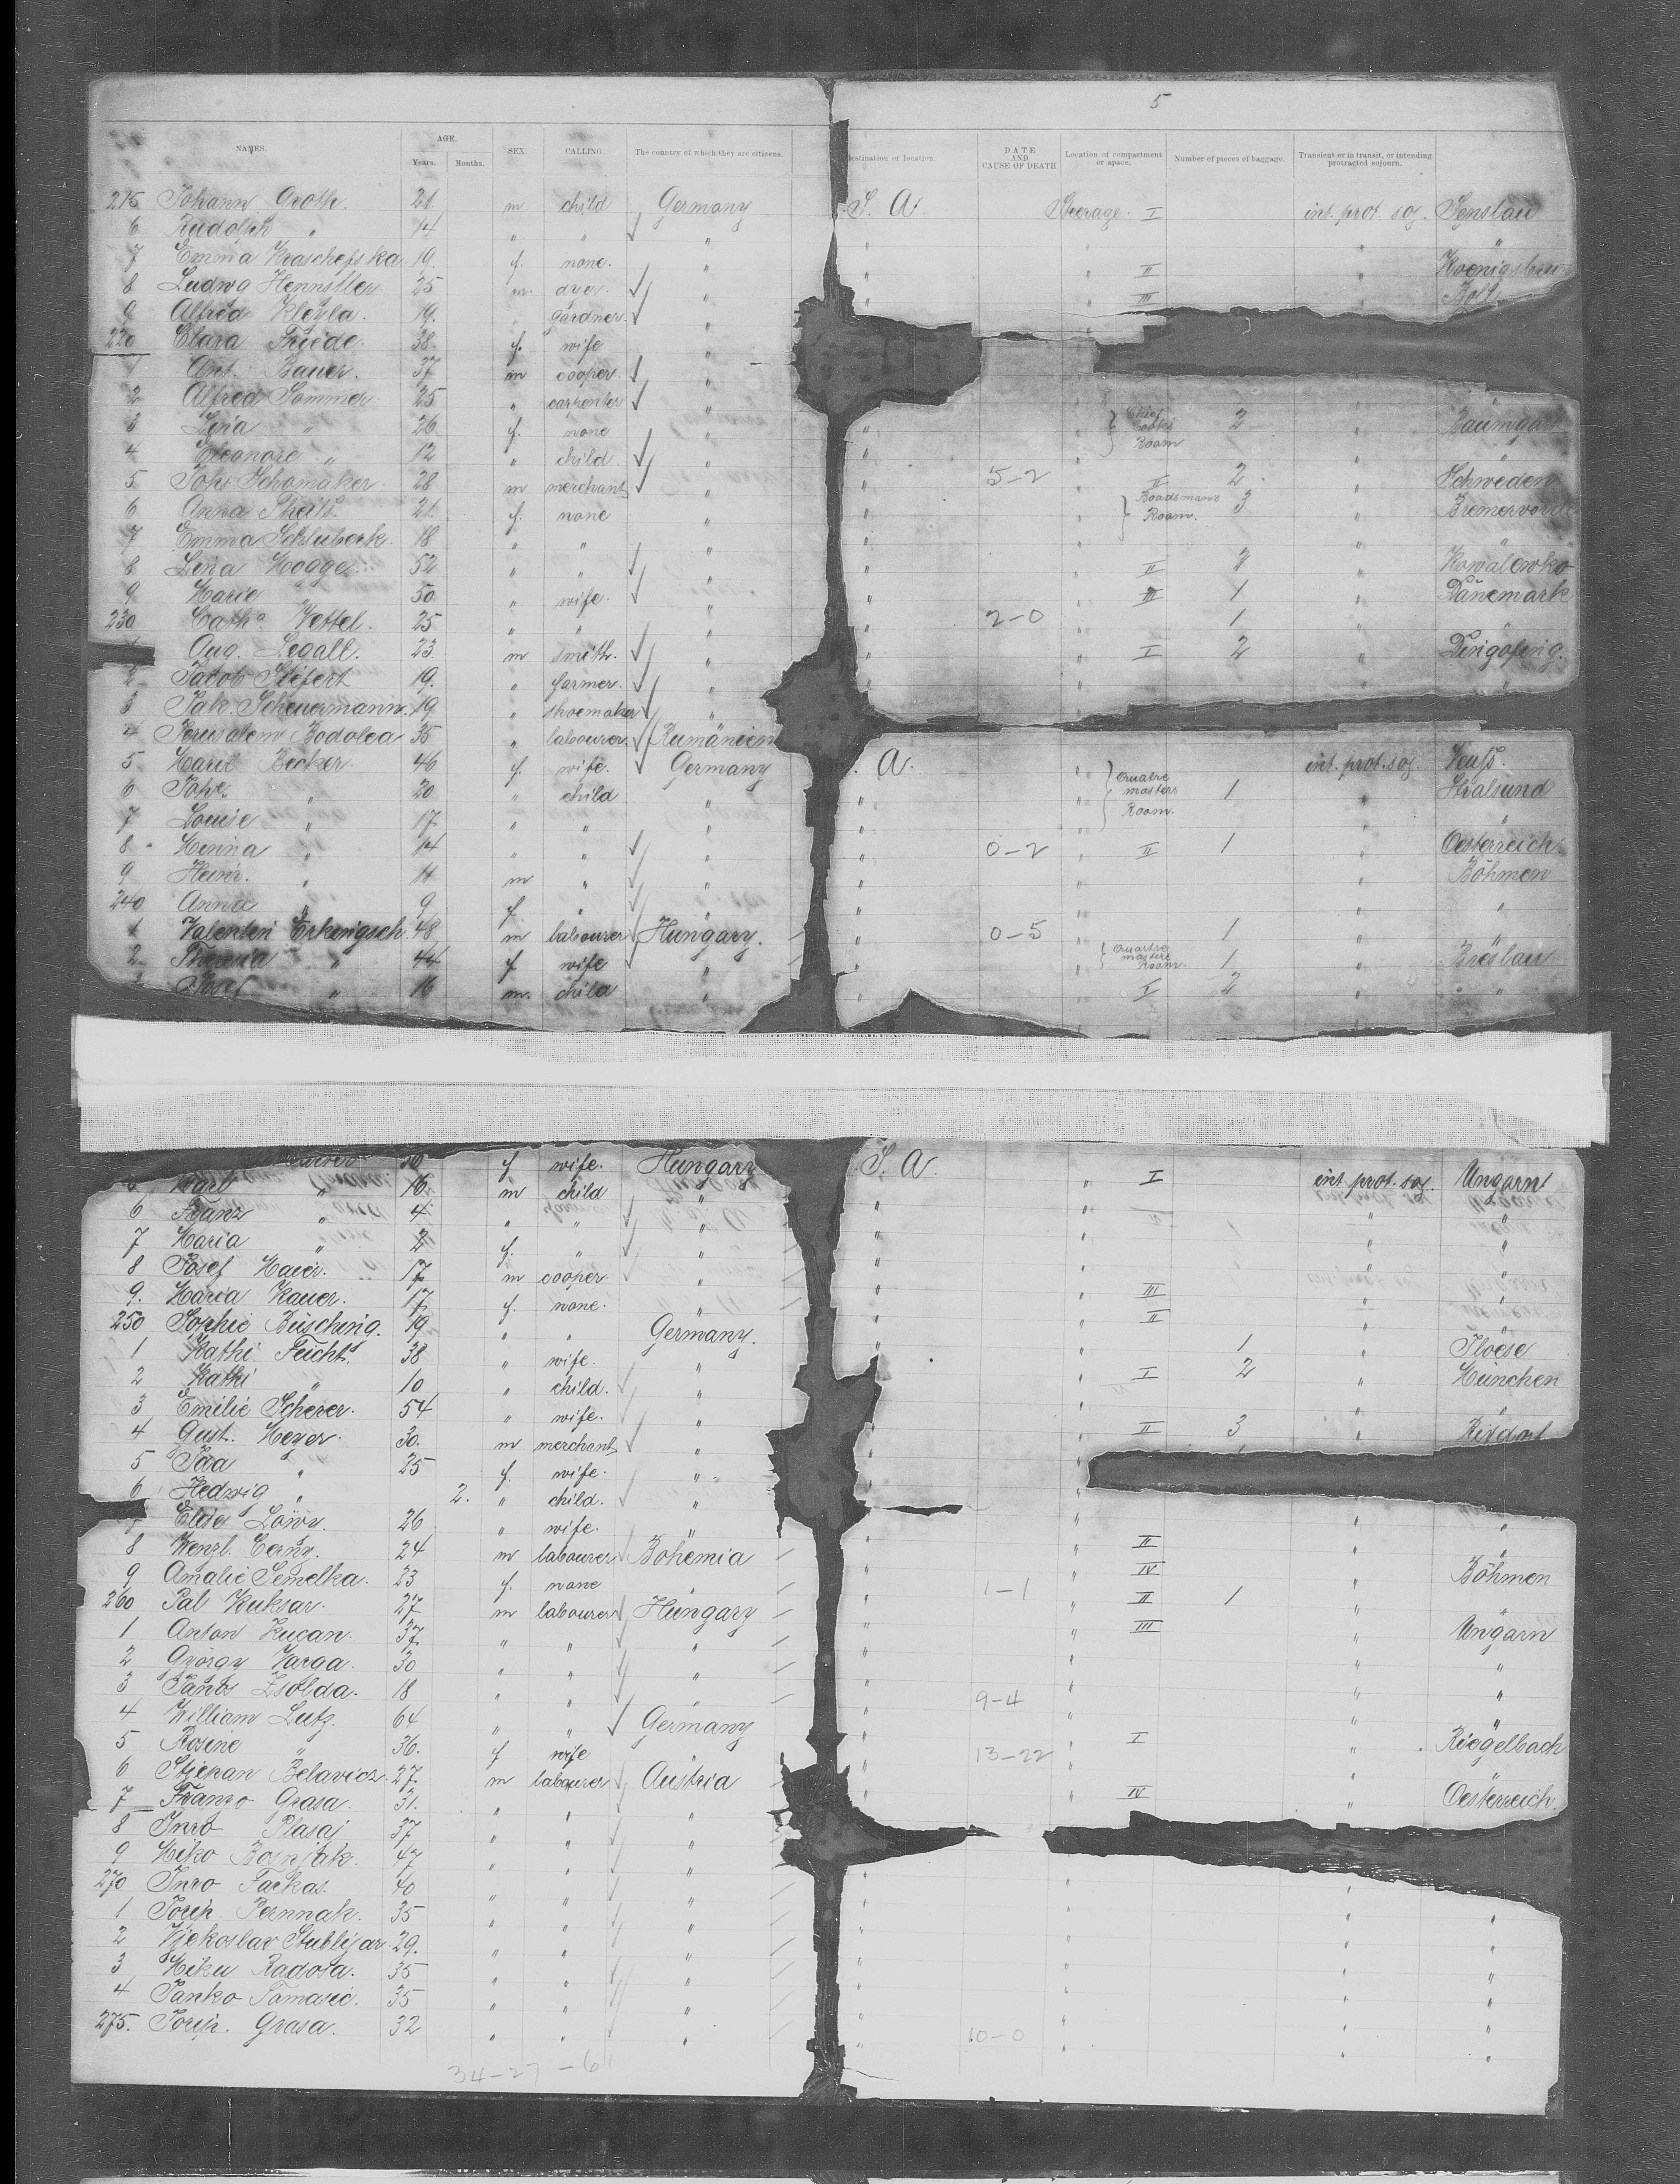 5
NAMES. AGE. Years. Months. SEX. CALLING. The country of which they are citizens. destination or location. DATE AND CAUSE OF DEATH Location of compartment or space. Number of pieces of baggage. Transient or in transit, or intending protracted sojourn.
215 Johann Groth. 21 m child Germany S. A. Steerage. I int. prot. soj.
6 Rudolph " 14 " " "
7 Emma 19. f. none. " II
8 Ludwg Hennstler 25 m. dyer. " III Boll
9 Alfred Kleyla. 19. gardner. "
220 Clara Friede. 38 f. wife "
1 Ant. Bauer. 37 m cooper. "
2 Alfred Sommer 25 " carpenter " Chief Cooks Room 2 " Baumgart
3 Lina " 26 f. none "
4 Eleonore " 12 " child. "
5 Johs Schomaker. 28 m merchant " 5-2 II 2 Schweden
6 Anna 21 f. none " Boadsmans Room. 3 Bremervörde
7 Emma Schluberk. 18 " " "
8 Lina Hogge 52 " " " II 2 Kowalewko
9 Marie 50 " wife. " III 1 Dänemark
230 Cath. Vettel. 25 " " " 2-0 1
Aug. Legall. 23 m smith. " I 2 Dingofing.
2 Jacob Seifert 19. " farmer. "
3 Jak. Scheuermann. 19 " shoemaker "
4 Jerusalem Bodolea 35 " labourer. Rumänien
5 Marie Becker. 46 f. wife. Germany A. Quatre masters Room. int. prot. soj.
6 Johs. " 20 " child " 1 Stralsund
7 Louise " 17 " " "
8 Minna " 14 " " " 0-2 II 1 Oesterreich.
9 Heinr. " 11 m " " Böhmen
240 Anna " 9 f. " "
1 Valentin 48 m labourer Hungary. 0-5 1 "
2 Theresia " 44 f wife " Quartre masters Room. 1 Breslau
3 Josef " 16 m. child " I 2 "
f wife. Hungary S. A. I int. prot. soj. Ungarn
Karl " 16 m child "
6 Franz " 4 " " "
7 Maria " 2 f. " "
8 Josef Maier. 17 m cooper "
9. Maria Kauer. 17 f. none. " III
250 Sophie Büsching. 19 " " Germany. II
1 Kathi Feicht. 38 " wife. " 1 Ilöese
2 Kathi " 10 " child. " I 2 München
3 Emilie Scherer. 54 " wife. "
4 Gust. Meyer. 30. m merchant " II 3 Rixdorf
5 Ida " 25 f. wife. "
6 Hedwig " 2. " child. "
Elise Löwy. 26 " wife. "
8 Wenzl. Cerny. 24 m labourer Bohemia II
9 Amalie Semelka. 23 f. none " 1-1 IV Böhmen
260 Pal Kuksar. 27 m labourer Hungary II 1
1 Anton Kucan. 37 " " " III Ungarn
2 György Varga. 30 " " "
3 Janos Zsolda. 18 " " " 9-4
4 William Lutz. 64 " " Germany
5 Rosine " 36. f wife 13-22 I Riegelbach
6 Stjepan Belavicz. 27 m labourer Austria
7 Franjo Grasa. 31. " " " IV Oesterreich.
8 Juro Plasaj 37 " " "
9 Miko Bosnjak. 47 " " "
270 Juro Farkas. 40 " " "
1 Josip Pernnak. 35 " " "
2 Vjekoslav Stublijar 29. " " "
3 Miku Radosa. 35 " " "
4 Janko Tomasic. 35 " " "
275. Josip. Grasa. 32 " " " 10-0
34-27-6